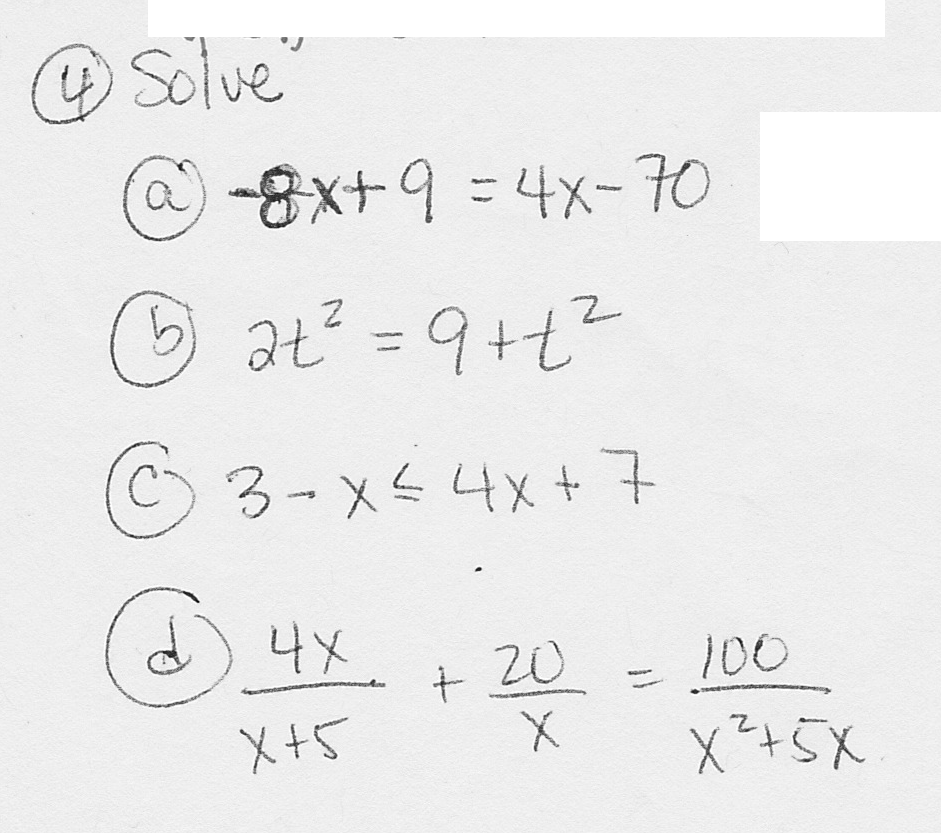 ④ Solve
ⓐ -8x+9 = 4x-70
ⓑ 2t² = 9+t²
ⓒ 3-x ≤ 4x+7
ⓓ 4x/(x+5) + 20/x = 100/(x²+5x)